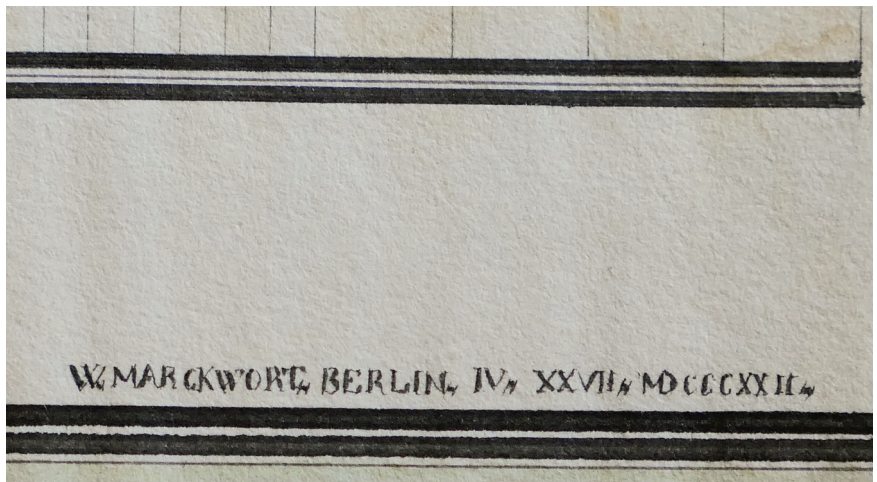 W. MARCKWORT, BERLIN, IV, XXVII, MDCCCCXXII,